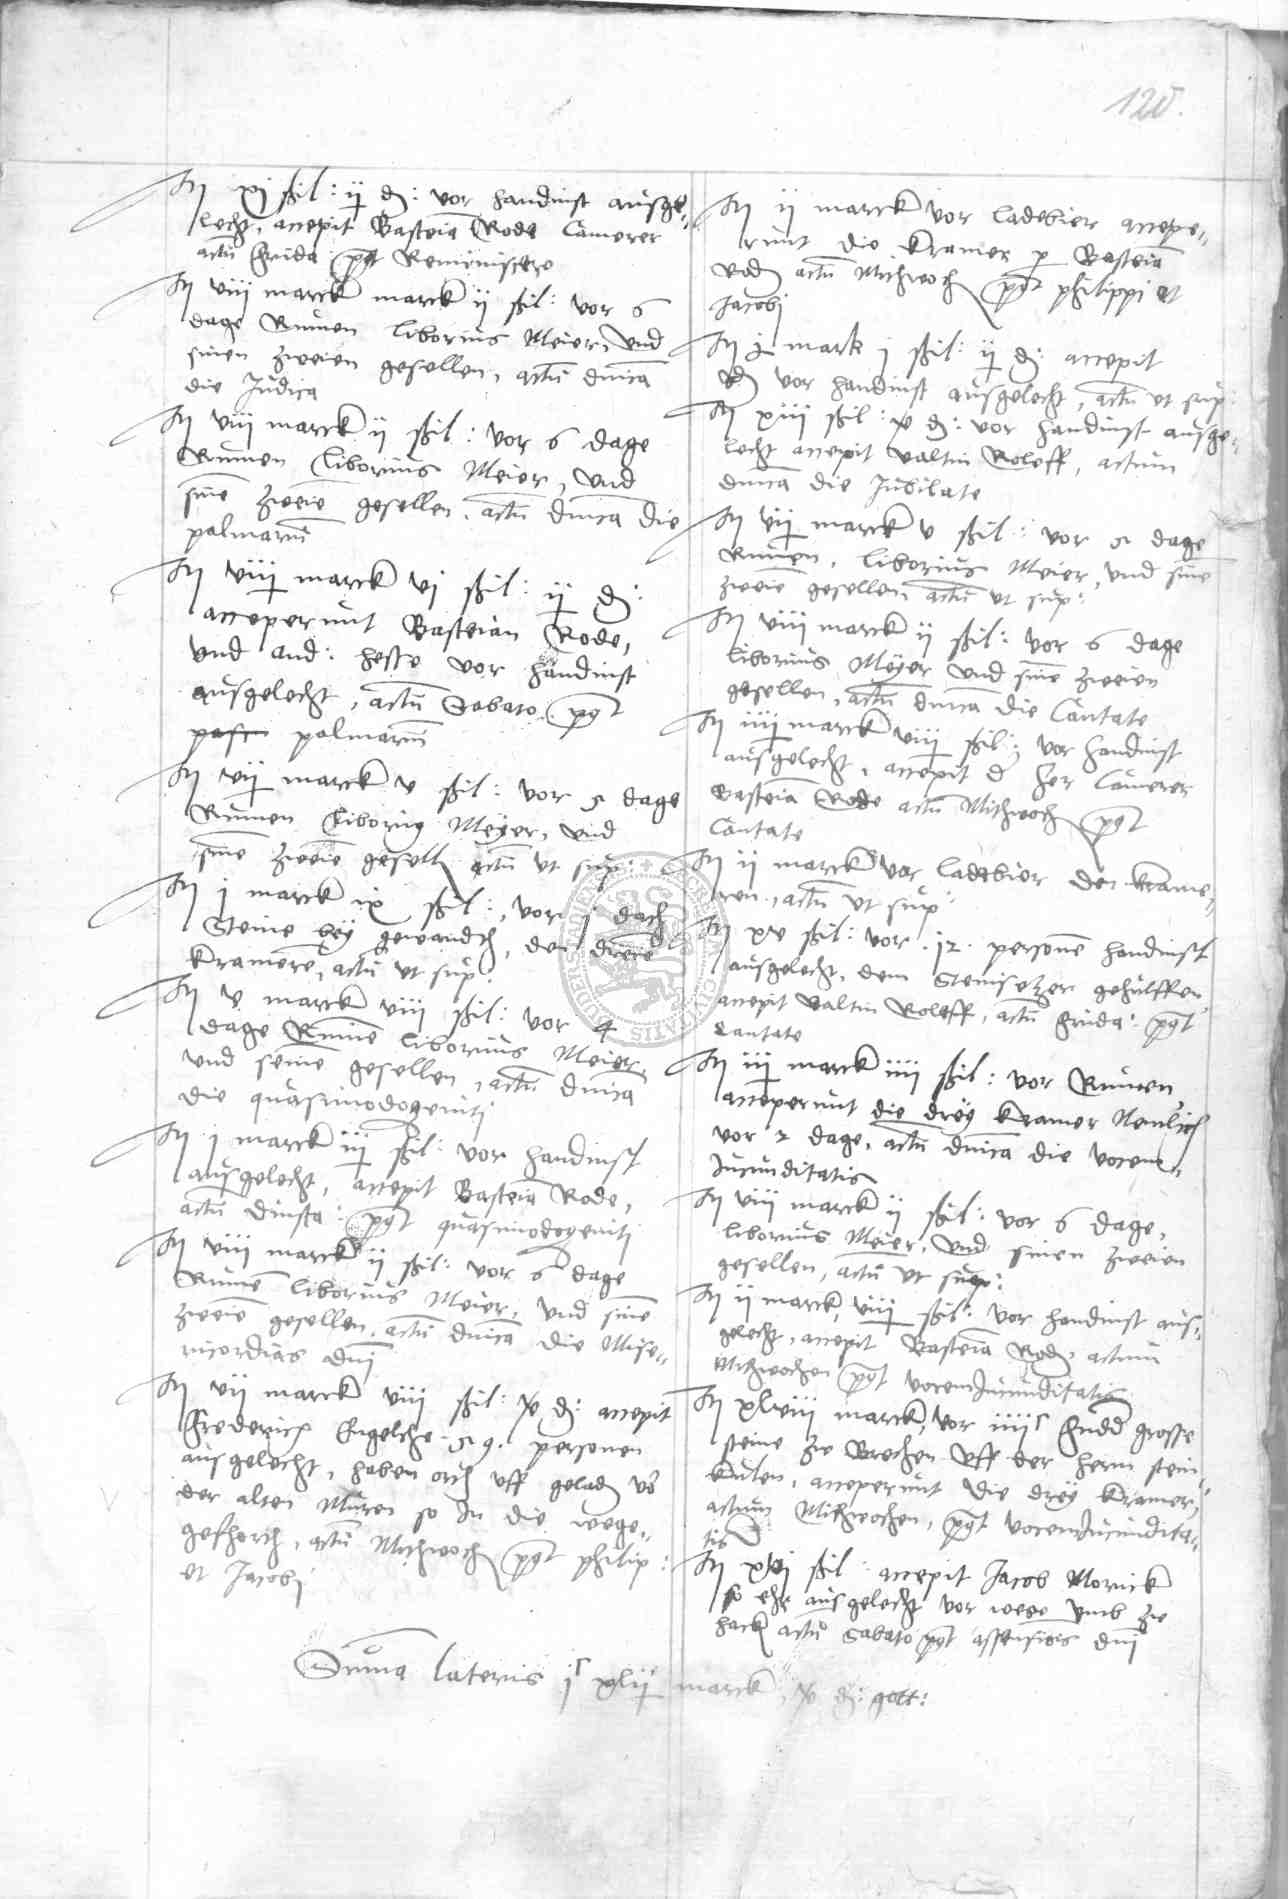 120.
It xj ßil: ij d: vor handinst ausge-
lecht, accepit Basteia Rode Camerer
actu frida: pat Reminiscere
It viii marck marck ij ßil: vor 6
dage Rumen liborius Meier, und
sinen zweien gesellen, actu dnica
die Judica
It viii marck ij ßil: vor 6 dage
Rumen liborius Meier, und
sine zweie gesellen, actu dnica die
palmaru
It viij marck vj ßil: ij d:
acceperunt Basteian Rode,
und And: hesse vor handinst
ausgelecht, actu Sabato pat
pasce palmaru
It vij marck v ßil: vor 5 dage
Rumen liborius Meyer, und
sine zweie gesell actu ut sup:
It j marck ix ßil:, vor j dach
Steine bey gewandt, der dreie
kramere, actu ut sup:
It v marck viii ßil: vor 4
dage Rumme liborius Meier,
und seine gesellen, actu dnica
die quasimodogeniti
It j marck iij ßil: vor handinst
ausgelecht, accepit Basteia Rode,
actu dinsta: pat quasimodogeniti
It viii marck ij ßil: vor 6 dage
Rume liborius Meier, und sine
zweie gesellen, actu dnica die Mise-
ricordias dni
It vii marck viii ßil: x d: accepit
frederich Engelche 59. personen
ausgelecht, haben och uff geladen vo
der alten Muren so In die wege
geschach, actu Mithwoch pat philip:
et Jacobi
It ij marck vor ladebier accepe-
runt die kramer p Basteia
Rod actu Mithwoch pat philippi et
Jacobi
It j mark j ßil: ij d: accepit
Id vor handinst ausgelecht, actu ut sup:
It xiii ßil: x d: vor handinst ausge-
lecht accepit valtin Roleff, actum
dnica die Jubilate
It vij marck v ßil: vor 5 dage
Rumen, liborius Meier, und sine
zweie gesellen, actu ut sup:
It viii marck ij ßil: vor 6 dage
liborius Meyer und sine zweien
gesellen, actu dnica die Cantate
It iiij marck viij ßil: vor handinst
ausgelecht, accepit d her Camerer
Basteia Rode actu Mithwoch pat
Cantate
It ij marck vor ladebier den krame-
ren, actu ut sup:
It xv ßil: vor .12. personen handinst
ausgelecht, dem Steinsetzer gehulffen
accepit valtin Roleff, actu frida: pat
Cantate
It iij marck iiii ßil: vor Rumen
acceperunt die drey kramer Nemlich
vor 2 dage, actu dnica die vocem
Jucunditatis
It viii marck ij ßil: vor 6 dage,
liborius Meier, und sinen zweien
gesellen, actu ut sup:
It ij marck viij ßil: vor handinst aus-
gelecht, accepit Basteia Rode, actum
Mithwochen pat vocemJucunditatis
It xlviii marck, vor iiii hudd grosse
steine zu Brechen Uff der hern stein-
kulen, acceperunt die drey kramer,
actum Mithwochen, pat vocemJucundita-
tis
It xvj ßil: accepit Jacob Mornick
so ehr ausgelecht vor wese umb zu
hack actu Sabato pat assensionis dni
Suma lateris jc xlij marck, x d: gott: